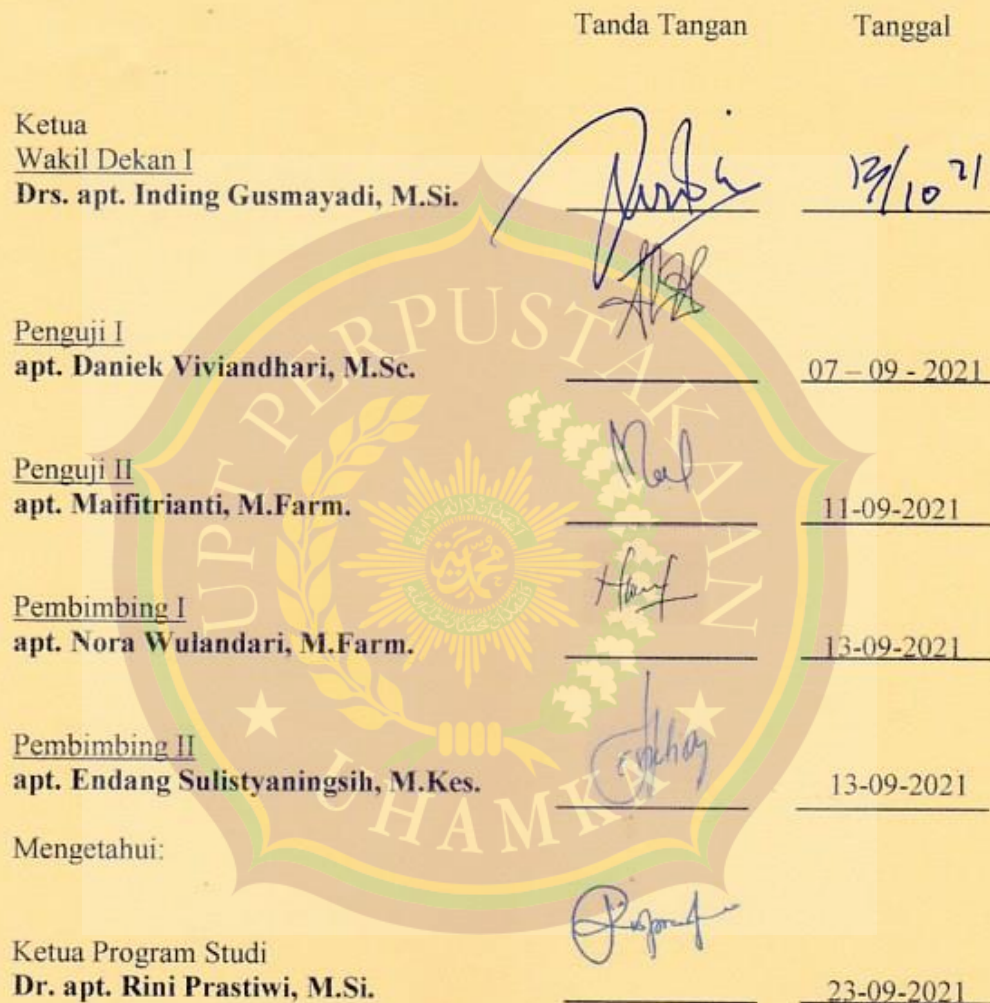 Tanda Tangan Tanggal
Ketua
Wakil Dekan I
Drs. apt. Inding Gusmayadi, M.Si. 10 21
Penguji I
apt. Daniek Viviandhari, M.Sc. 07 – 09 - 2021
Penguji II
apt. Maifitrianti, M.Farm. 11-09-2021
Pembimbing I
apt. Nora Wulandari, M.Farm. 13-09-2021
Pembimbing II
apt. Endang Sulistyaningsih, M.Kes. 13-09-2021
Mengetahui:
Ketua Program Studi
Dr. apt. Rini Prastiwi, M.Si. 23-09-2021
UPT PERPUSTAKAAN
UHAMKA